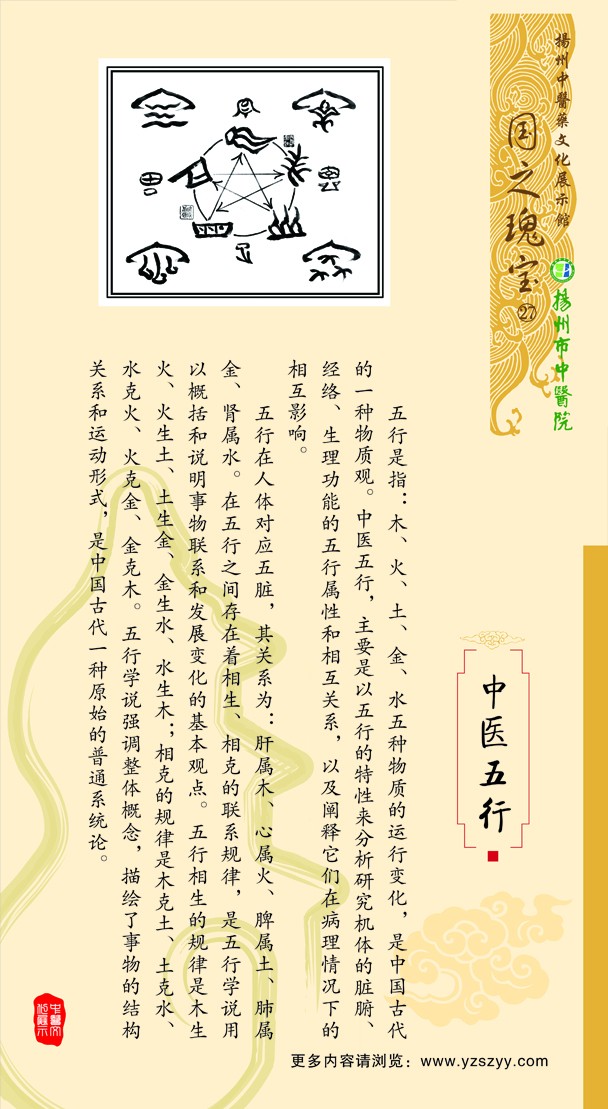 揚州中醫藥文化展示館
国之瑰宝㉗
揚州市中醫院
中医五行
五行是指：木、火、土、金、水五种物质的运行变化，是中国古代
的一种物质观。中医五行，主要是以五行的特性来分析研究机体的脏腑、
经络、生理功能的五行属性和相互关系，以及阐释它们在病理情况下的
相互影响。
五行在人体对应五脏，其关系为：肝属木、心属火、脾属土、肺属
金、肾属水。在五行之间存在着相生、相克的联系规律，是五行学说用
以概括和说明事物联系和发展变化的基本观点。五行相生的规律是木生
火、火生土、土生金、金生水、水生木；相克的规律是木克土、土克水、
水克火、火克金、金克木。五行学说强调整体概念，描绘了事物的结构
关系和运动形式，是中国古代一种原始的普通系统论。
更多内容请浏览：www.yzszyy.com